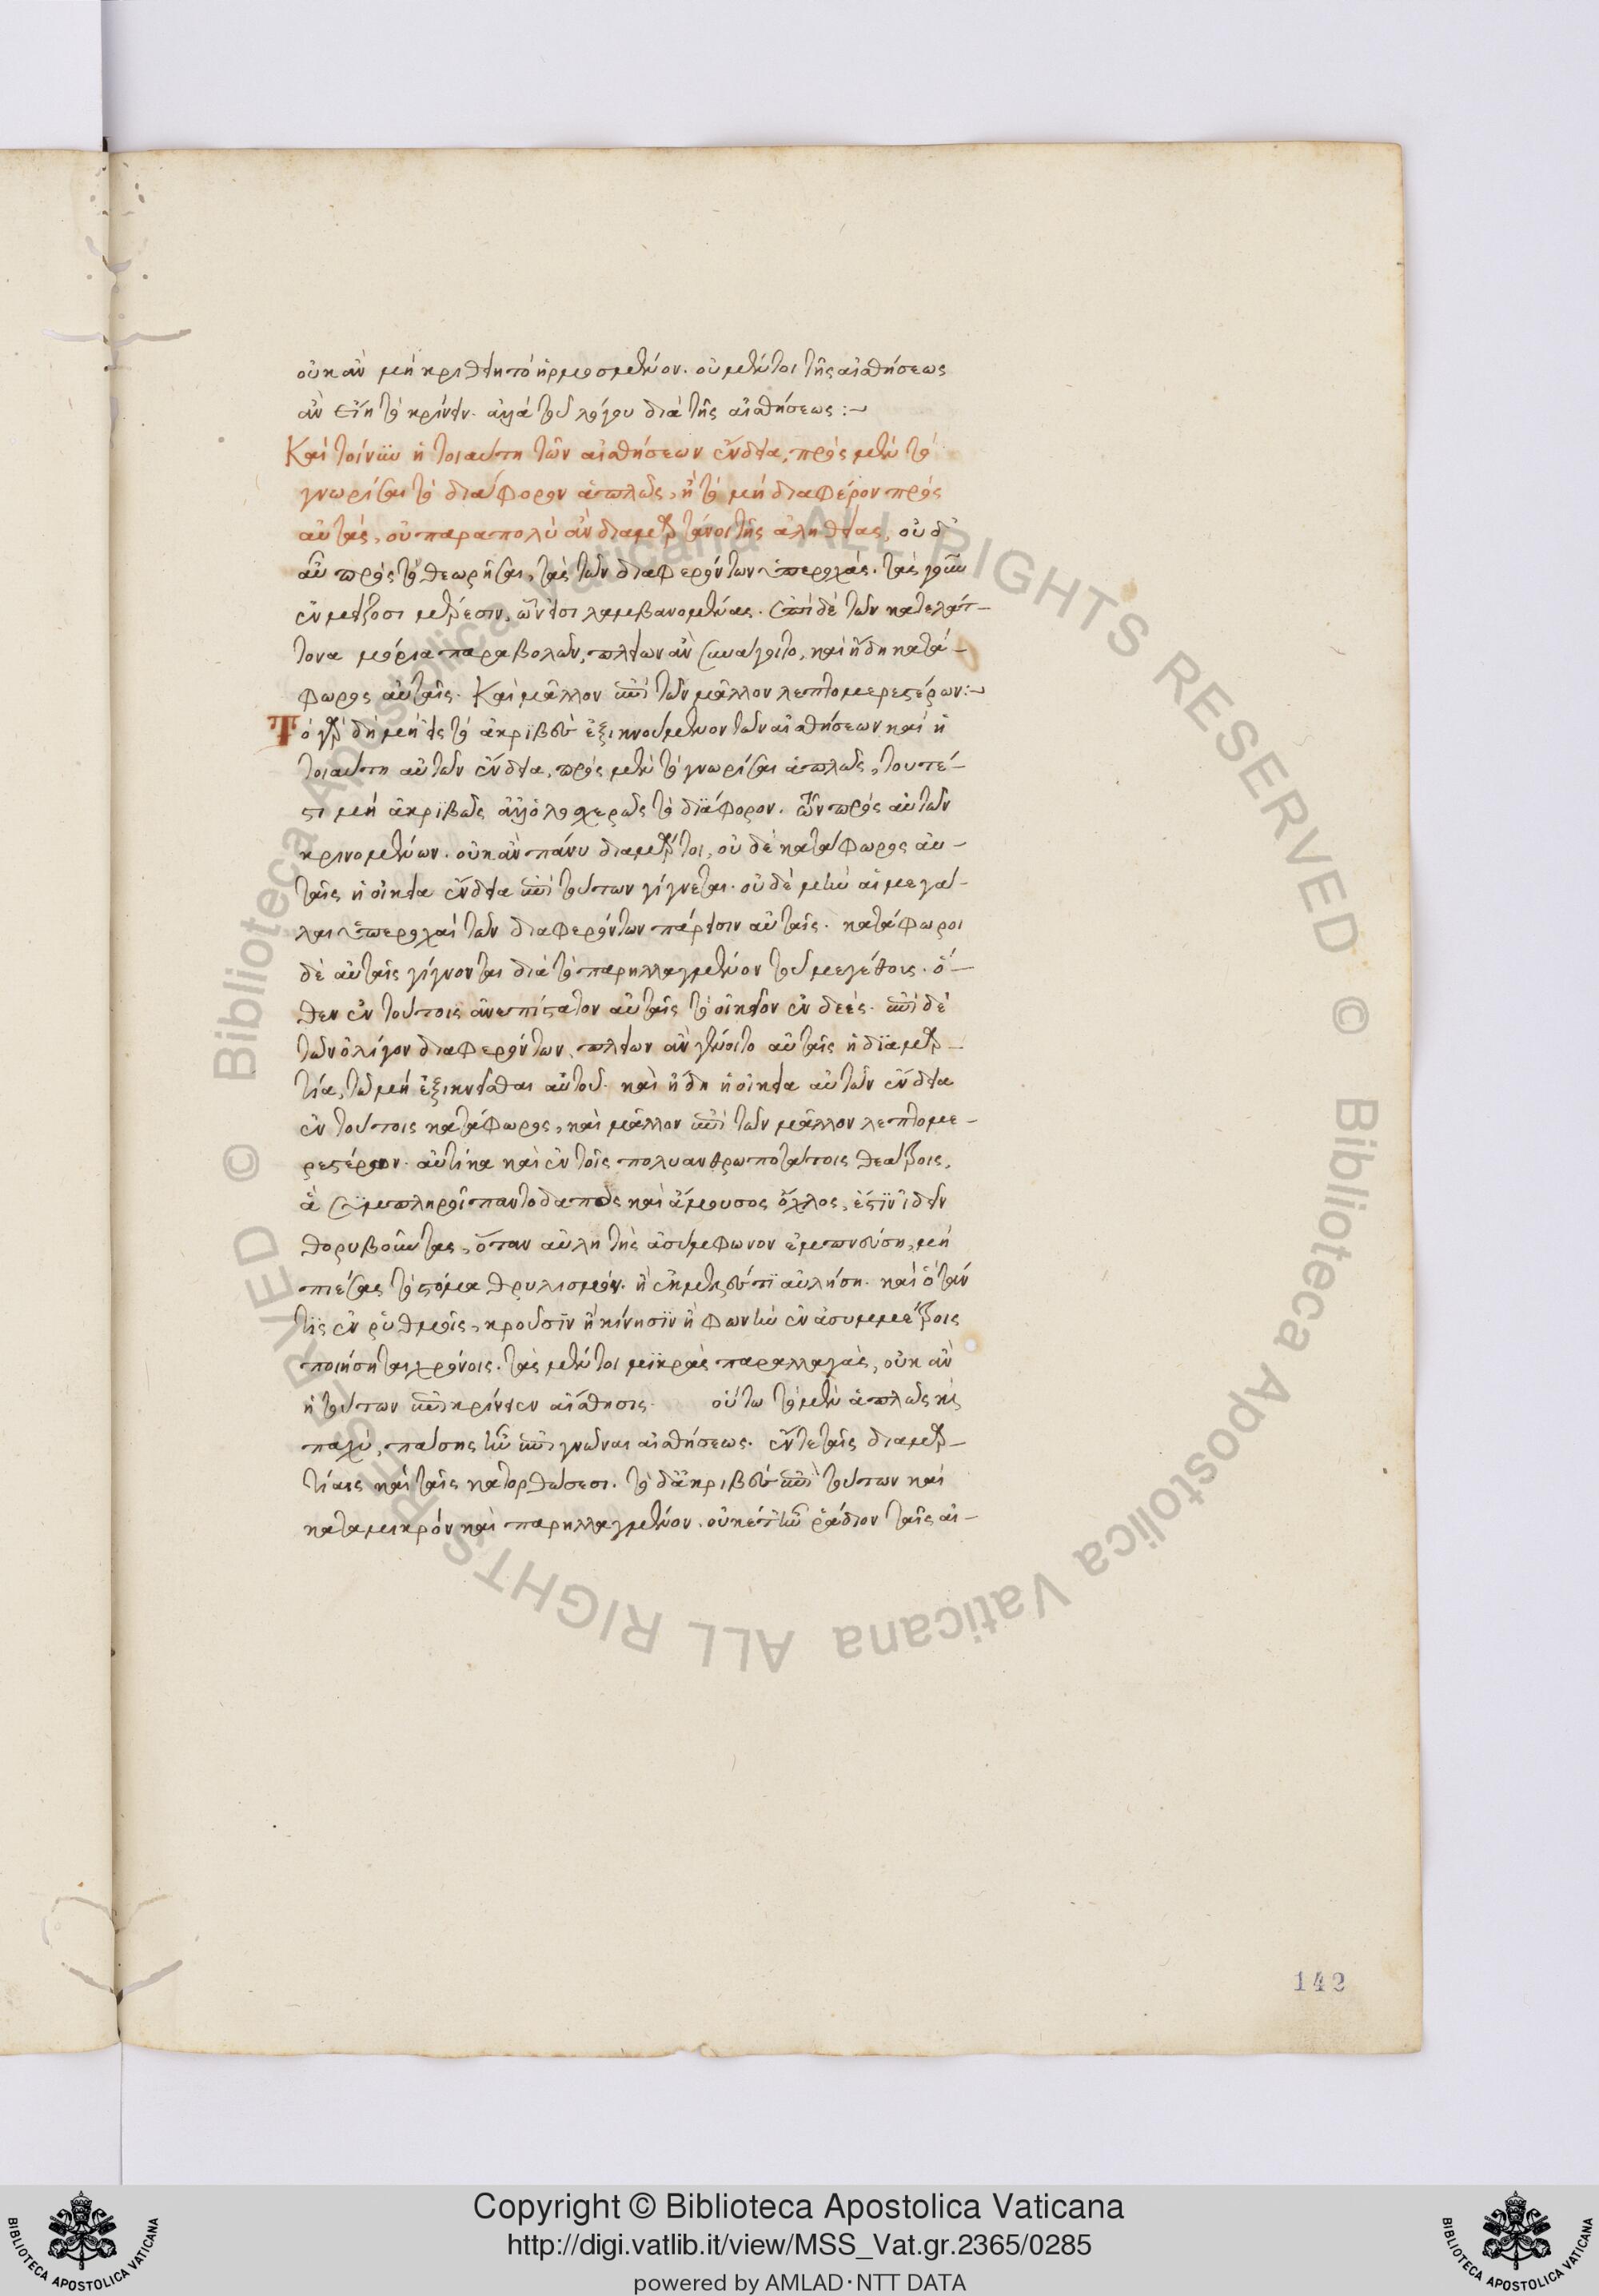 οὐκ ἂν μὴ κριθείη τὸ ἡρμοσμένον. οὐ μέντοι τῆς αἰσθήσεως
ἂν εἴη τὸ κρίνειν. ἀλλὰ τοῦ λόγου διὰ τῆς αἰσθήσεως :~
Καὶ τοίνυν ἡ τοιαύτη τῶν αἰσθήσεων ἔνδεια, πρὸς μὲν τὸ
γνωρίσαι τὸ διάφορον ἁπλῶς, ἢ τὸ μὴ διαφέρον πρὸς
αὐτάς, οὐ παραπολὺ ἂν διαμαρτάνοι τῆς ἀληθείας, οὐδ'
αὖ πρὸς τὸ θεωρῆσαι, τὰς τῶν διαφερόντων ὑπεροχάς. τάς γοῦν
ἐν μείζοσι μέρεσιν, ὧν εἰσι λαμβανομένας. ἐπὶ δὲ τῶν κατ' ἐλάτ-
τονα μόρια παραβολῶν, πλείων ἂν συνάγοιτο, καὶ ἤδη κατά-
φωρος αὐταῖς. Καὶ μᾶλλον ἐπὶ τῶν μᾶλλον λεπτομερεστέρων :~
Τὸ γὰρ δὴ μὴ εἰς τὸ ἀκριβὲς ἐξικνούμενον τῶν αἰσθήσεων καὶ ἡ
τοιαύτη αὐτῶν ἔνδεια, πρὸς μὲν τὸ γνωρίσαι ἁπλῶς, τουτέ-
στι μὴ ἀκριβῶς ἀλλ' ὁλοσχερῶς τὸ διάφορον. τῶν πρὸς αὐτῶν
κρινομένων. οὐκ ἂν πάνυ διαμάρτοι, οὐδὲ κατάφωρος αὐ-
ταῖς ἡ οἰκεία ἔνδεια ἐπὶ τούτων γίγνεται. οὐδὲ μὴν αἱ μεγάλ-
λαι ὑπεροχαὶ τῶν διαφερόντων πάρεισιν αὐταῖς. κατάφωροι
δὲ αὐταῖς γίγνονται διὰ τὸ παρηλλαγμένον τοῦ μεγέθους. ὅ-
θεν ἐν τούτοις ἀνεπίστατον αὐταῖς τὸ οἰκεῖον ἐνδεές. ἐπὶ δὲ
τῶν ὀλίγον διαφερόντων, πλείων ἂν γένοιτο αὐταῖς ἡ διαμαρ-
τία, τῷ μὴ ἐξικνεῖσθαι αὐτοῦ. καὶ ἤδη ἡ οἰκεία αὐτῶν ἔνδεια
ἐν τούτοις κατάφωρος, καὶ μᾶλλον ἐπὶ τῶν μᾶλλον λεπτομε-
ρεστέρων. αὐτίκα καὶ ἐν τοῖς πολυανθρωποτάτοις θεάτροις,
ἃ συμπληροῖ παντοδαπὸς καὶ ἄμουσος ὄχλος, ἔστιν ἰδεῖν
θορυβοῦντας, ὅταν αὐλητὴς ἀσύμφωνον ἐμπνεύσῃ, μὴ
πιέσας τὸ στόμα θρυλισμόν. ἢ ἐκμελές τι αὐλήσῃ. καὶ ὅταν
τις ἐν ῥυθμοῖς, κροῦσιν ἢ κίνησιν ἢ φωνὴν ἐν ἀσυμμέτροις
ποιήσηται χρόνοις. τὰς μέντοι μικρὰς παραλλαγὰς, οὐκ ἂν
ἡ τούτων ἐπικρίνειεν αἴσθησις. οὕτω τὸ μὲν ἁπλῶς καὶ
παχὺ, πάσης ἦν ἐπιγνῶναι αἰσθήσεως. ἔν τε ταῖς διαμαρ-
τίαις καὶ ταῖς κατορθώσεσι. τὸ δ' ἀκριβὲς ἐπὶ τούτων καὶ
καταμικρὸν καὶ παρηλλαγμένον. οὐκέτ' ἦν ῥάδιον ταῖς αἰ-
142
Copyright © Biblioteca Apostolica Vaticana
http://digi.vatlib.it/view/MSS_Vat.gr.2365/0285
powered by AMLAD·NTT DATA